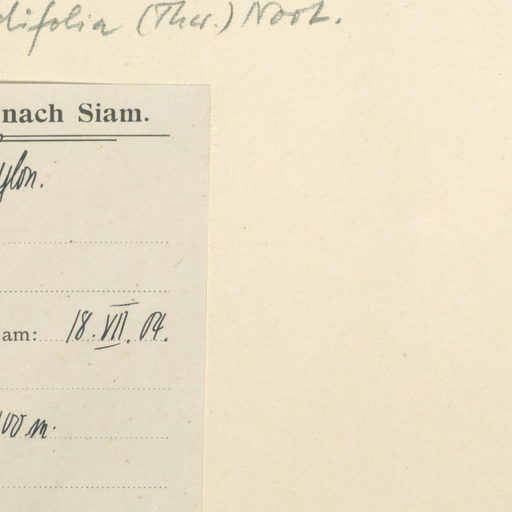 difolia (Thw.) Noot.
nach Siam.
ylon.
am: 18. VII. 04.
00 m.